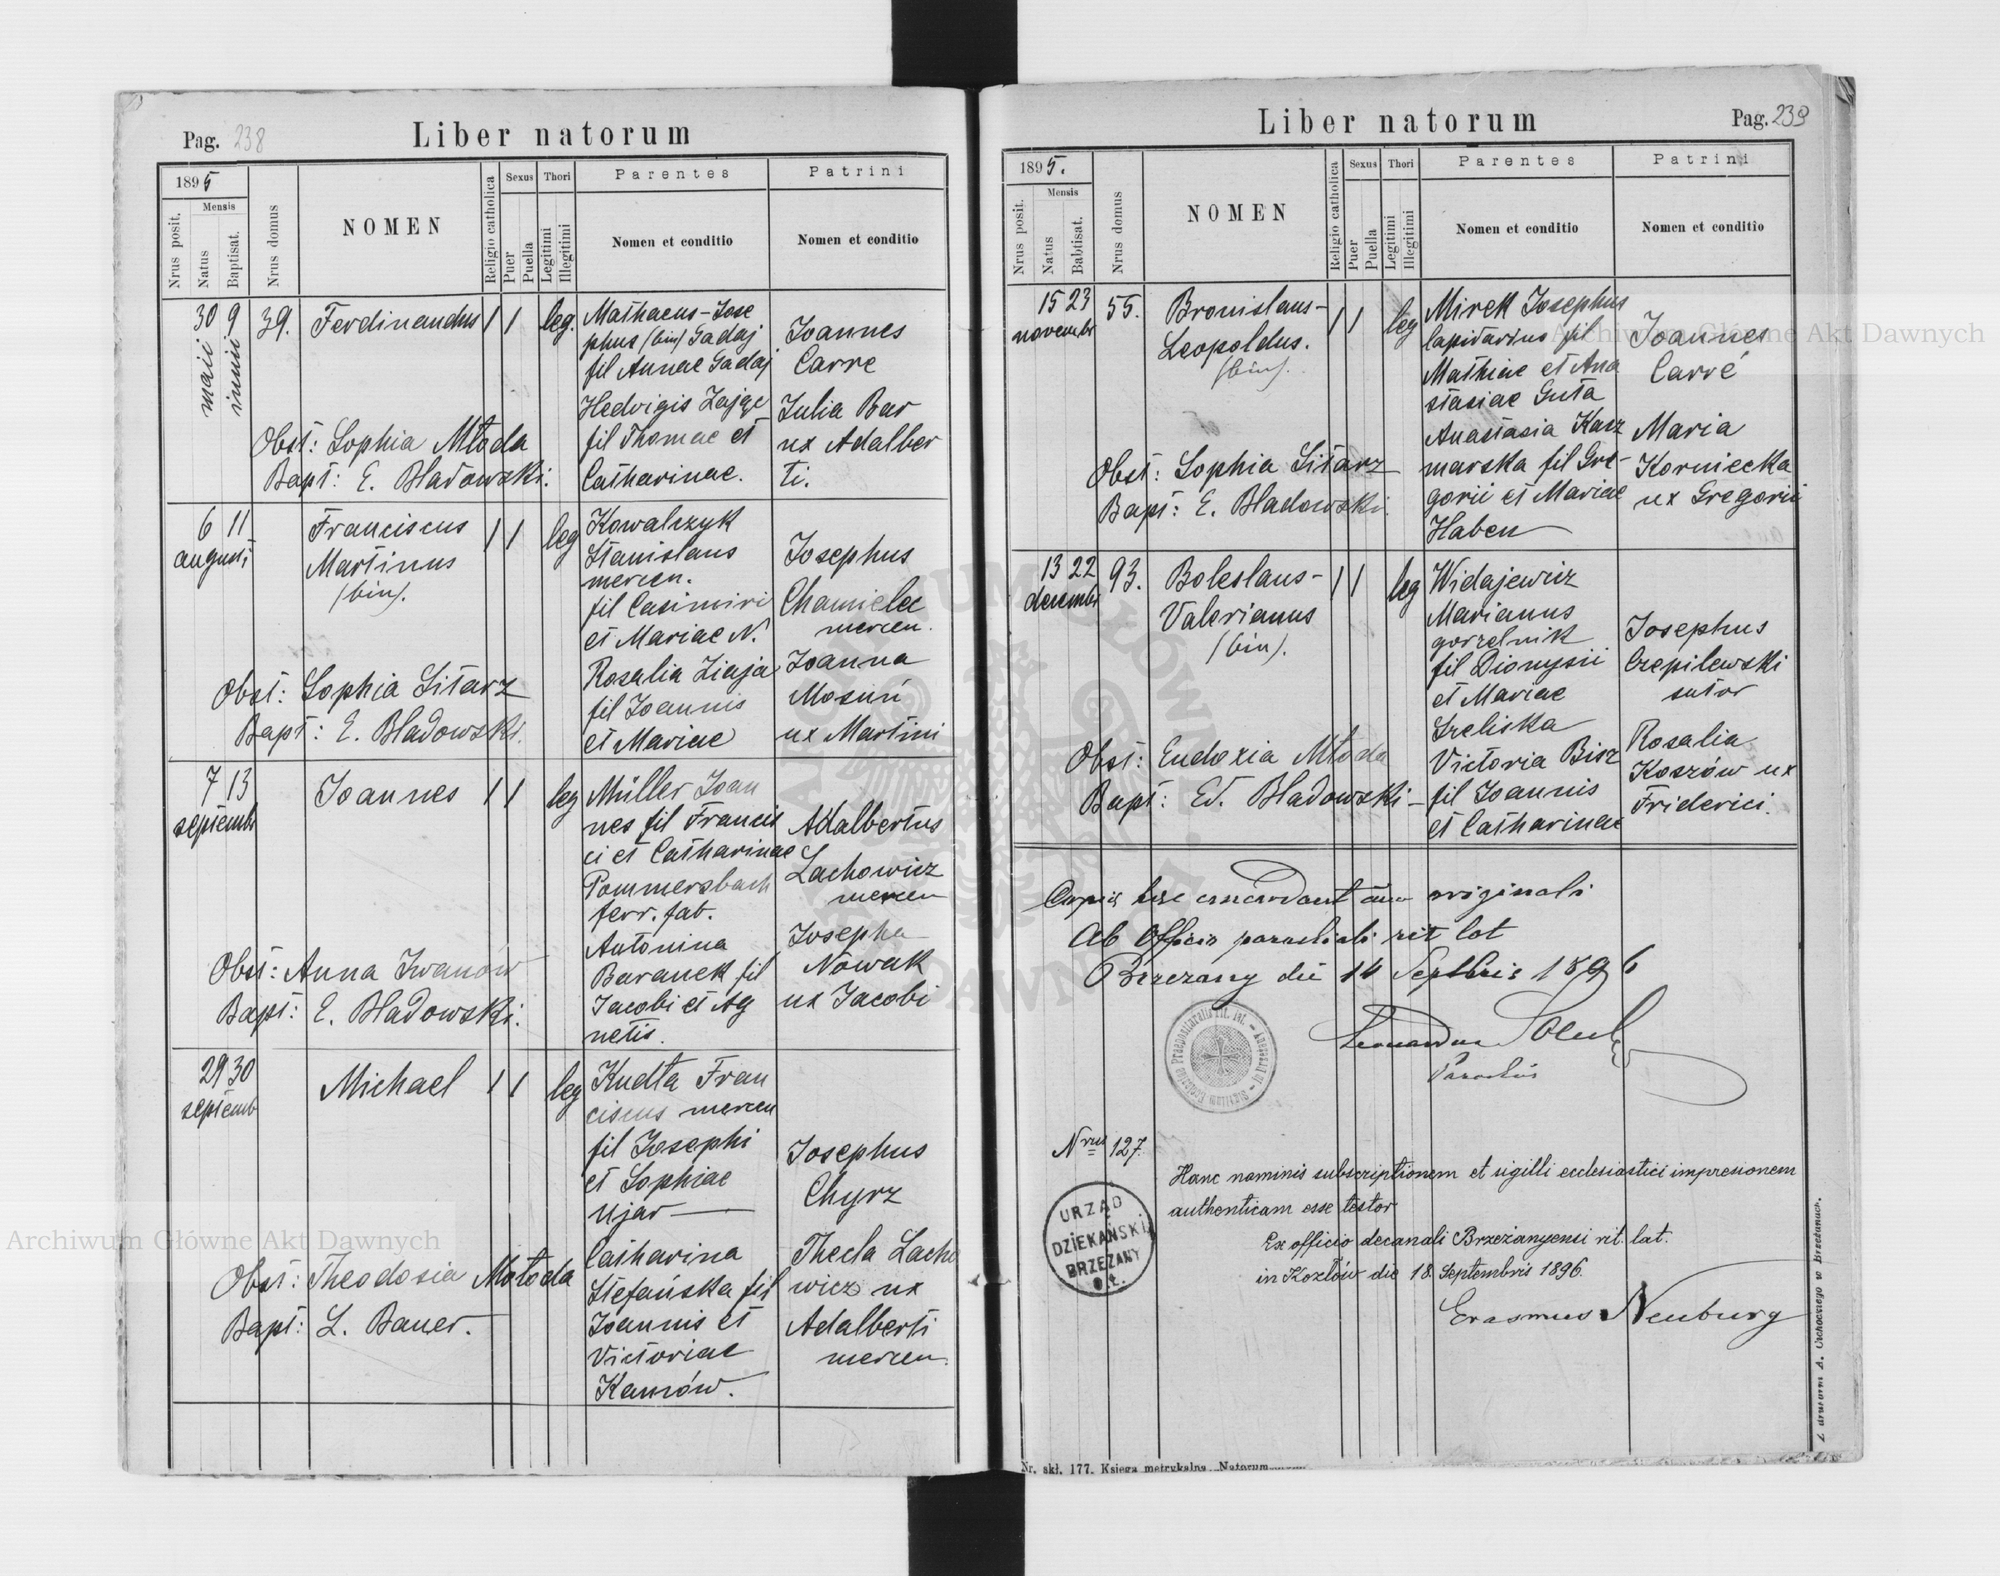 Pag. 238
Liber natorum
1895
Nrus posit.
Mensis
Natus
Baptisat.
Nrus domus
NOMEN
Religio catholica
Sexus
Puer
Puella
Thori
Legitimi
Illegitimi
Parentes
Nomen et conditio
Patrini
Nomen et conditio
30 9 39. Ferdinandus 1 1 leg.
maii
iunii
Mathaeus-Jose
phus (bin) Gadaj
fil Annae Gadaj
Hedvigis Zając
fil Thomae et
Catharinae.
Joannes
Carre
Julia Bar
ux Adalber
ti.
Obst: Sophia Młoda
Bapt: E. Bladowski.
6 11 Franciscus 1 1 leg
augusti
Martinus
(bin).
Kowalczyk
Stanislaus
mercen.
fil Casimiri
et Mariae N.
Rosalia Ziaja
fil Joannis
et Mariae
Josephus
Chamielec
mercen.
Joanna
Mosuń
ux Martini
Obst: Sophia Sitarz
Bapt: E. Bladowski.
7 13 Joannes 1 1 leg
septembr
Müller Joan
nes fil Francis
ci et Catharinae
Pommersbach
ferr. fab.
Antonina
Baranek fil
Jacobi et Ag
netis.
Adalbertus
Lachowicz
mercen
Josepha
Nowak
ux Jacobi
Obst: Anna Iwanów
Bapt: E. Bladowski.
29 30 Michael 1 1 leg
septemb
Kudła Fran
ciscus mercen
fil Josephi
et Sophiae
Ujar
Catharina
Stefańska fil
Joannis et
Victoriae
Kamów.
Josephus
Chyrz
Thecla Lacho
wicz ux
Adalberti
mercen.
Obst: Theodosia Mołoda
Bapt: L. Bauer.
Pag. 239
Liber natorum
1895.
Nrus posit.
Mensis
Natus
Babtisat.
Nrus domus
NOMEN
Religio catholica
Sexus
Puer
Puella
Thori
Legitimi
Illegitimi
Parentes
Nomen et conditio
Patrini
Nomen et conditio
15 23 55. Bronislaus- 1 1 leg
novembr
Leopoldus.
(bin).
Mirek Josephus
lapidarius fil
Mathiae et Ana
stasiae Guta
Anastasia Kacz
marska fil Gre-
gorii et Mariae
Haben
Joannes
Carré
Maria
Korniecka
ux Gregorii
Obst: Sophia Sitarz
Bapt: E. Bladowski.
13 22 93. Boleslaus- 1 1 leg
decembr
Valerianus
(bin).
Widajewicz
Marianus
gorzelnik
fil Dionysii
et Mariae
Greliska
Victoria Bisz
fil Joannis
et Catharinae
Josephus
Czepilewski
sutor
Rosalia
Koszów ux
Friderici.
Obst: Eudoxia Młoda
Bapt: Ed. Bladowski
concordant cum originali
Ab Officio parochiali rit lat
Brzezany die 14 Septbris 1896
Parochus
Nrus 127.
Hanc nominis subscriptionem et sigilli ecclesiastici impresionem
authenticam esse testor
Ex officio decanali Brzeżanyensi rit. lat.
in Kozłów die 18. Septembris 1896.
Erasmus Neuburg
URZĄD
DZIEKAŃSKI
BRZEŻANY
o. ł.
Nr. skł. 177. Księga metrykalna „Natorum
Archiwum Główne Akt Dawnych
Archiwum Główne Akt Dawnych